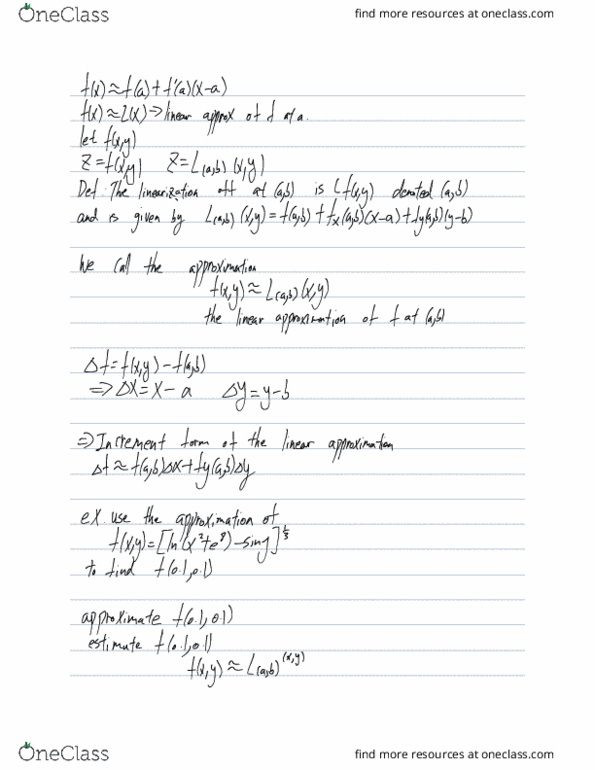 OneClass
find more resources at oneclass.com
f(x)≈f(a)+f'(a)(x-a)
f(x)≈L(x)⇒linear approx of f at a.
let f(x,y)
Z=f(x,y) Z=L(a,b)(x,y)
Def: The linearization off at (a,b) is Lf(x,y) denoted (a,b)
and is given by L(a,b)(x,y)=f(a,b)+fx(a,b)(x-a)+fy(a,b)(y-b)
We call the approximation
f(x,y)≈L(a,b)(x,y)
the linear approximation of f at (a,b)
Δf=f(x,y)-f(a,b)
⇒Δx=x-a Δy=y-b
⇒Increment form of the linear approximation
Δf≈f(a,b)Δx+fy(a,b)Δy
ex. use the approximation of
f(x,y)=[ln(x²+e^y)-siny]^1/3
to find f(0.1,0.1)
approximate f(0.1,0.1)
estimate f(0.1,0.1)
f(x,y)≈L(a,b)(x,y)
OneClass
find more resources at oneclass.com